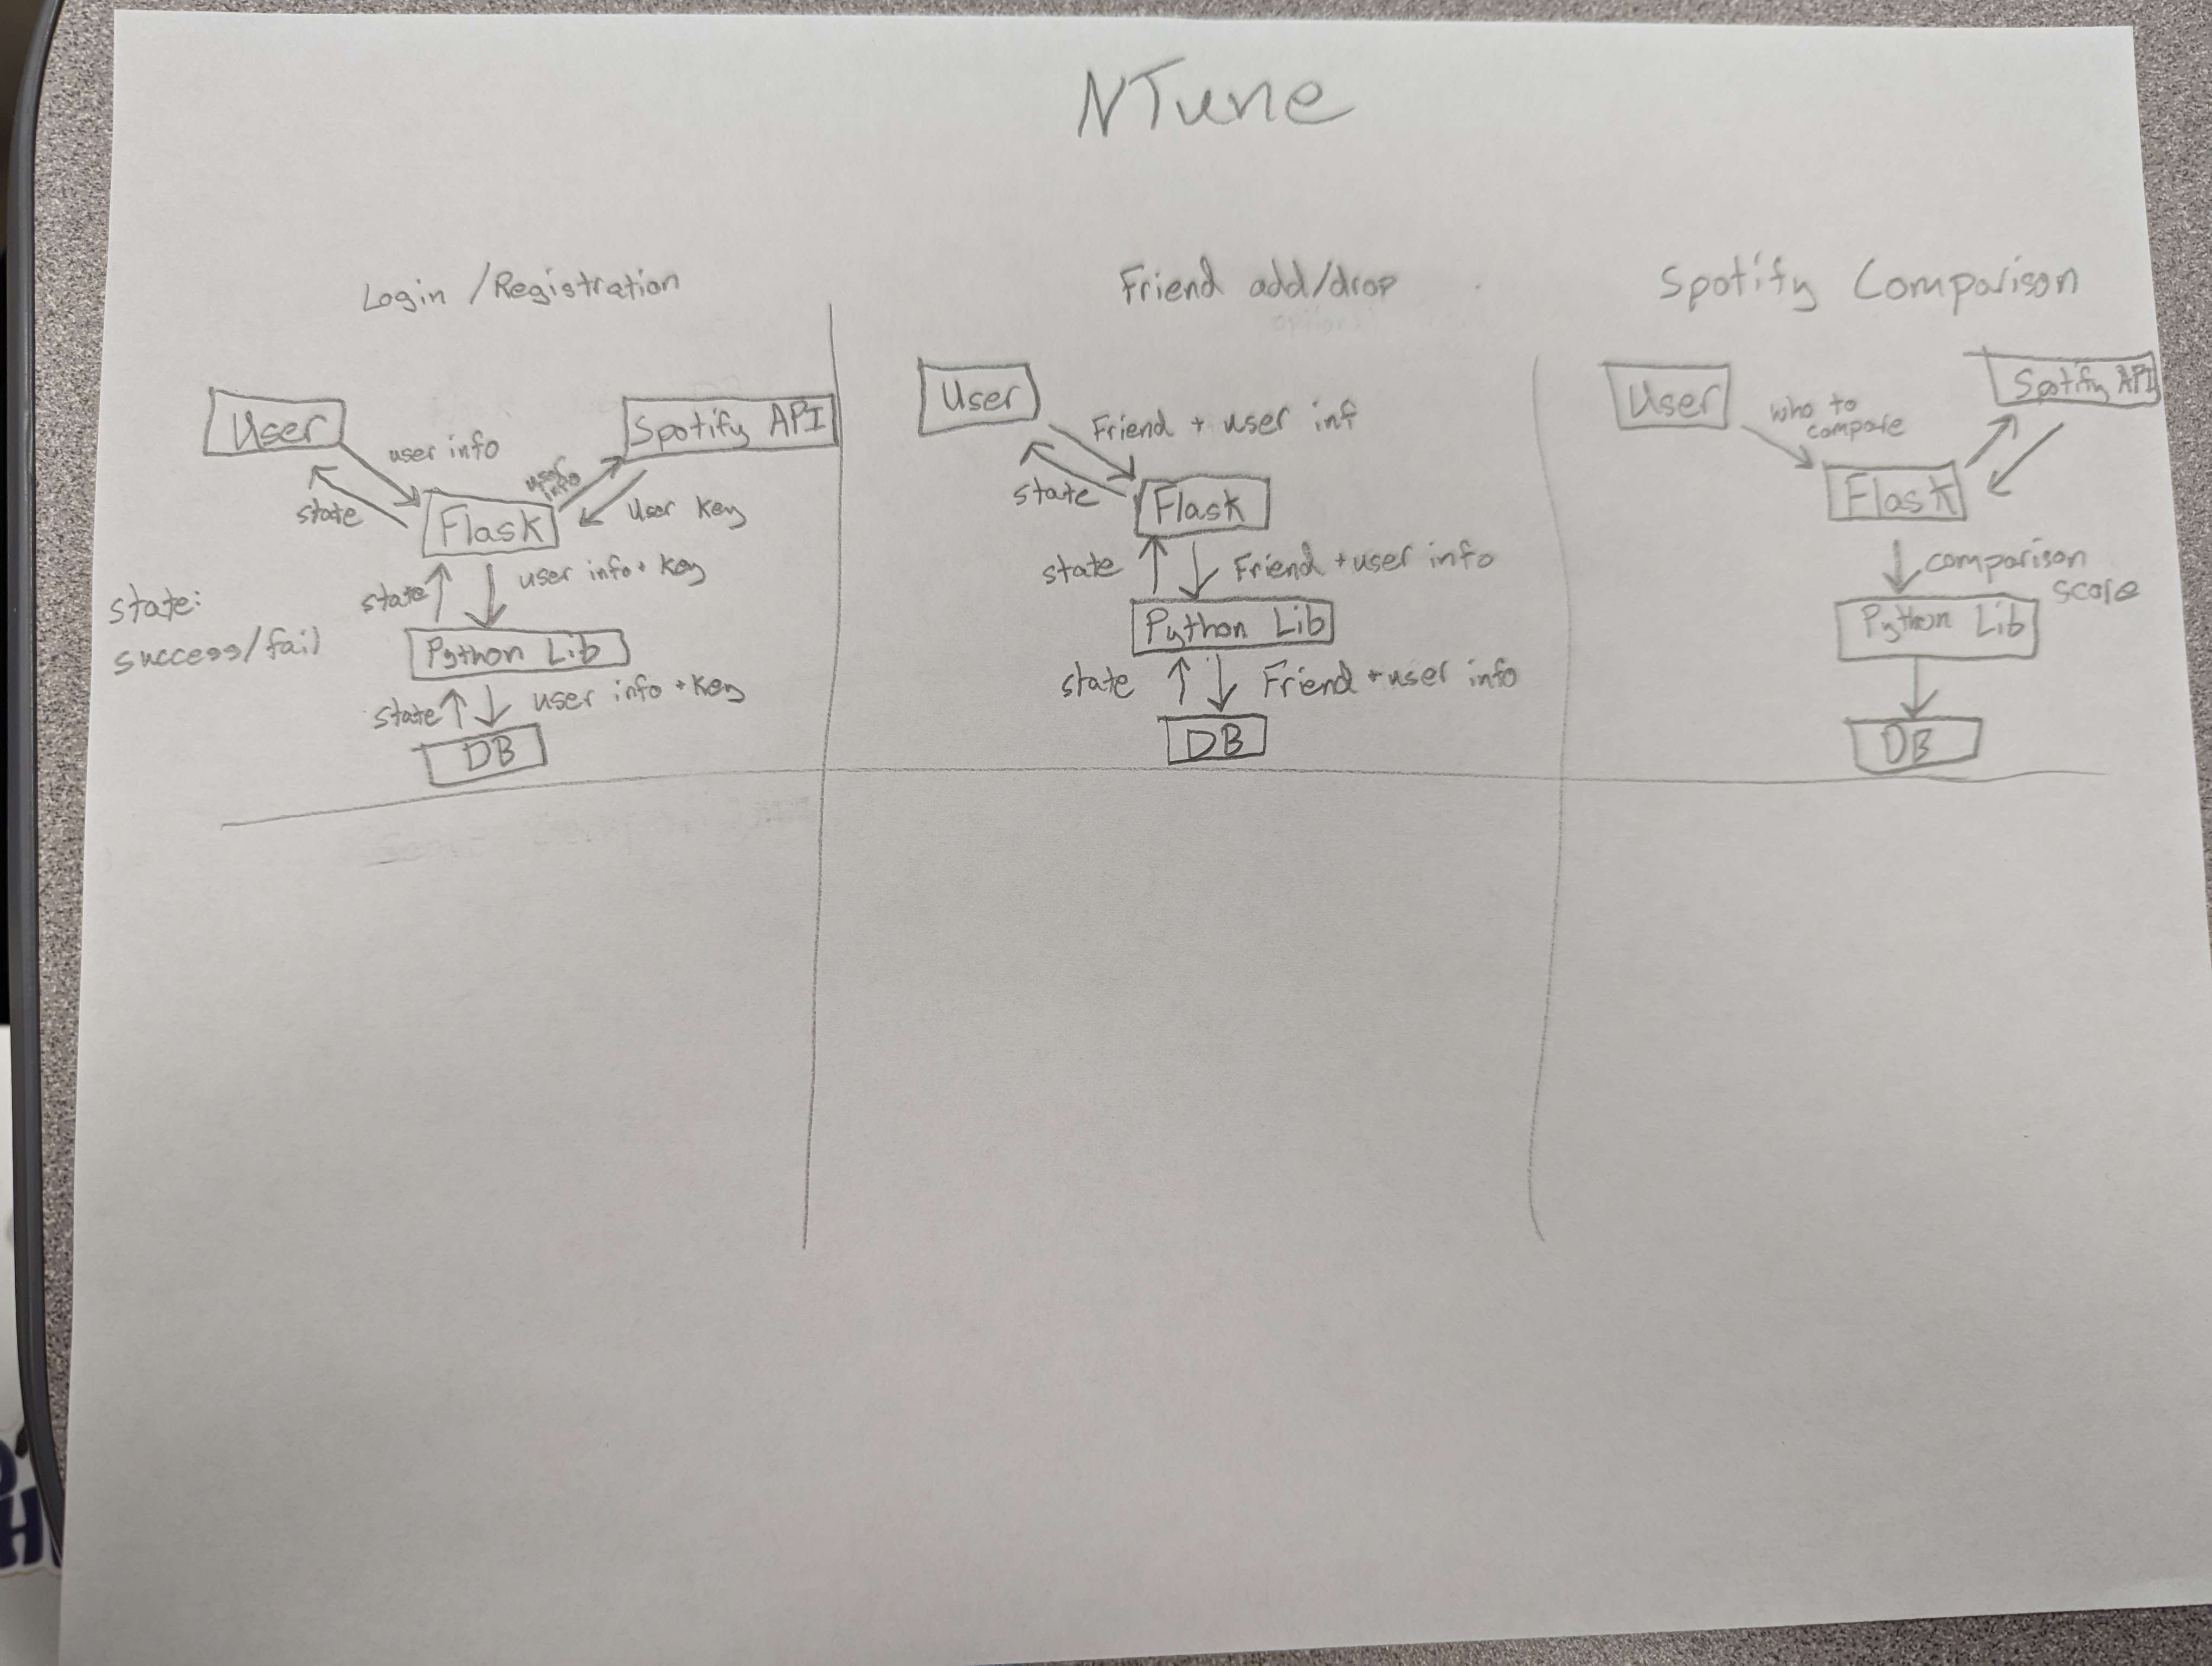 NTune
Login / Registration
User
Spotify API
user info
user
info
state
User Key
Flask
user info + Key
state
state:
success/fail
Python Lib
state
user info + Key
DB
Friend add/drop
User
Friend + user inf
state
Flask
state
Friend + user info
Python Lib
state
Friend + user info
DB
Spotify Comparison
User
Spotify API
who to
compare
Flask
comparison
score
Python Lib
DB